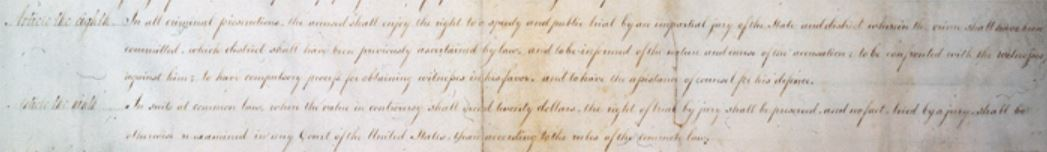 Article the eighth.. In all criminal prosecutions, the accused shall enjoy the right to a speedy and public trial, by an impartial jury of the State and district wherein the crime shall have been
committed, which district shall have been previously ascertained by law, and to be informed of the nature and cause of the accusation; to be confronted with the witnesses
against him; to have compulsory process for obtaining witnesses in his favor, and to have the assistance of counsel for his defence.
Article the ninth.. In suits at common law, where the value in controversy shall exceed twenty dollars, the right of trial by jury shall be preserved, and no fact, tried by a jury, shall be
otherwise re-examined in any Court of the United States, than according to the rules of the common law.